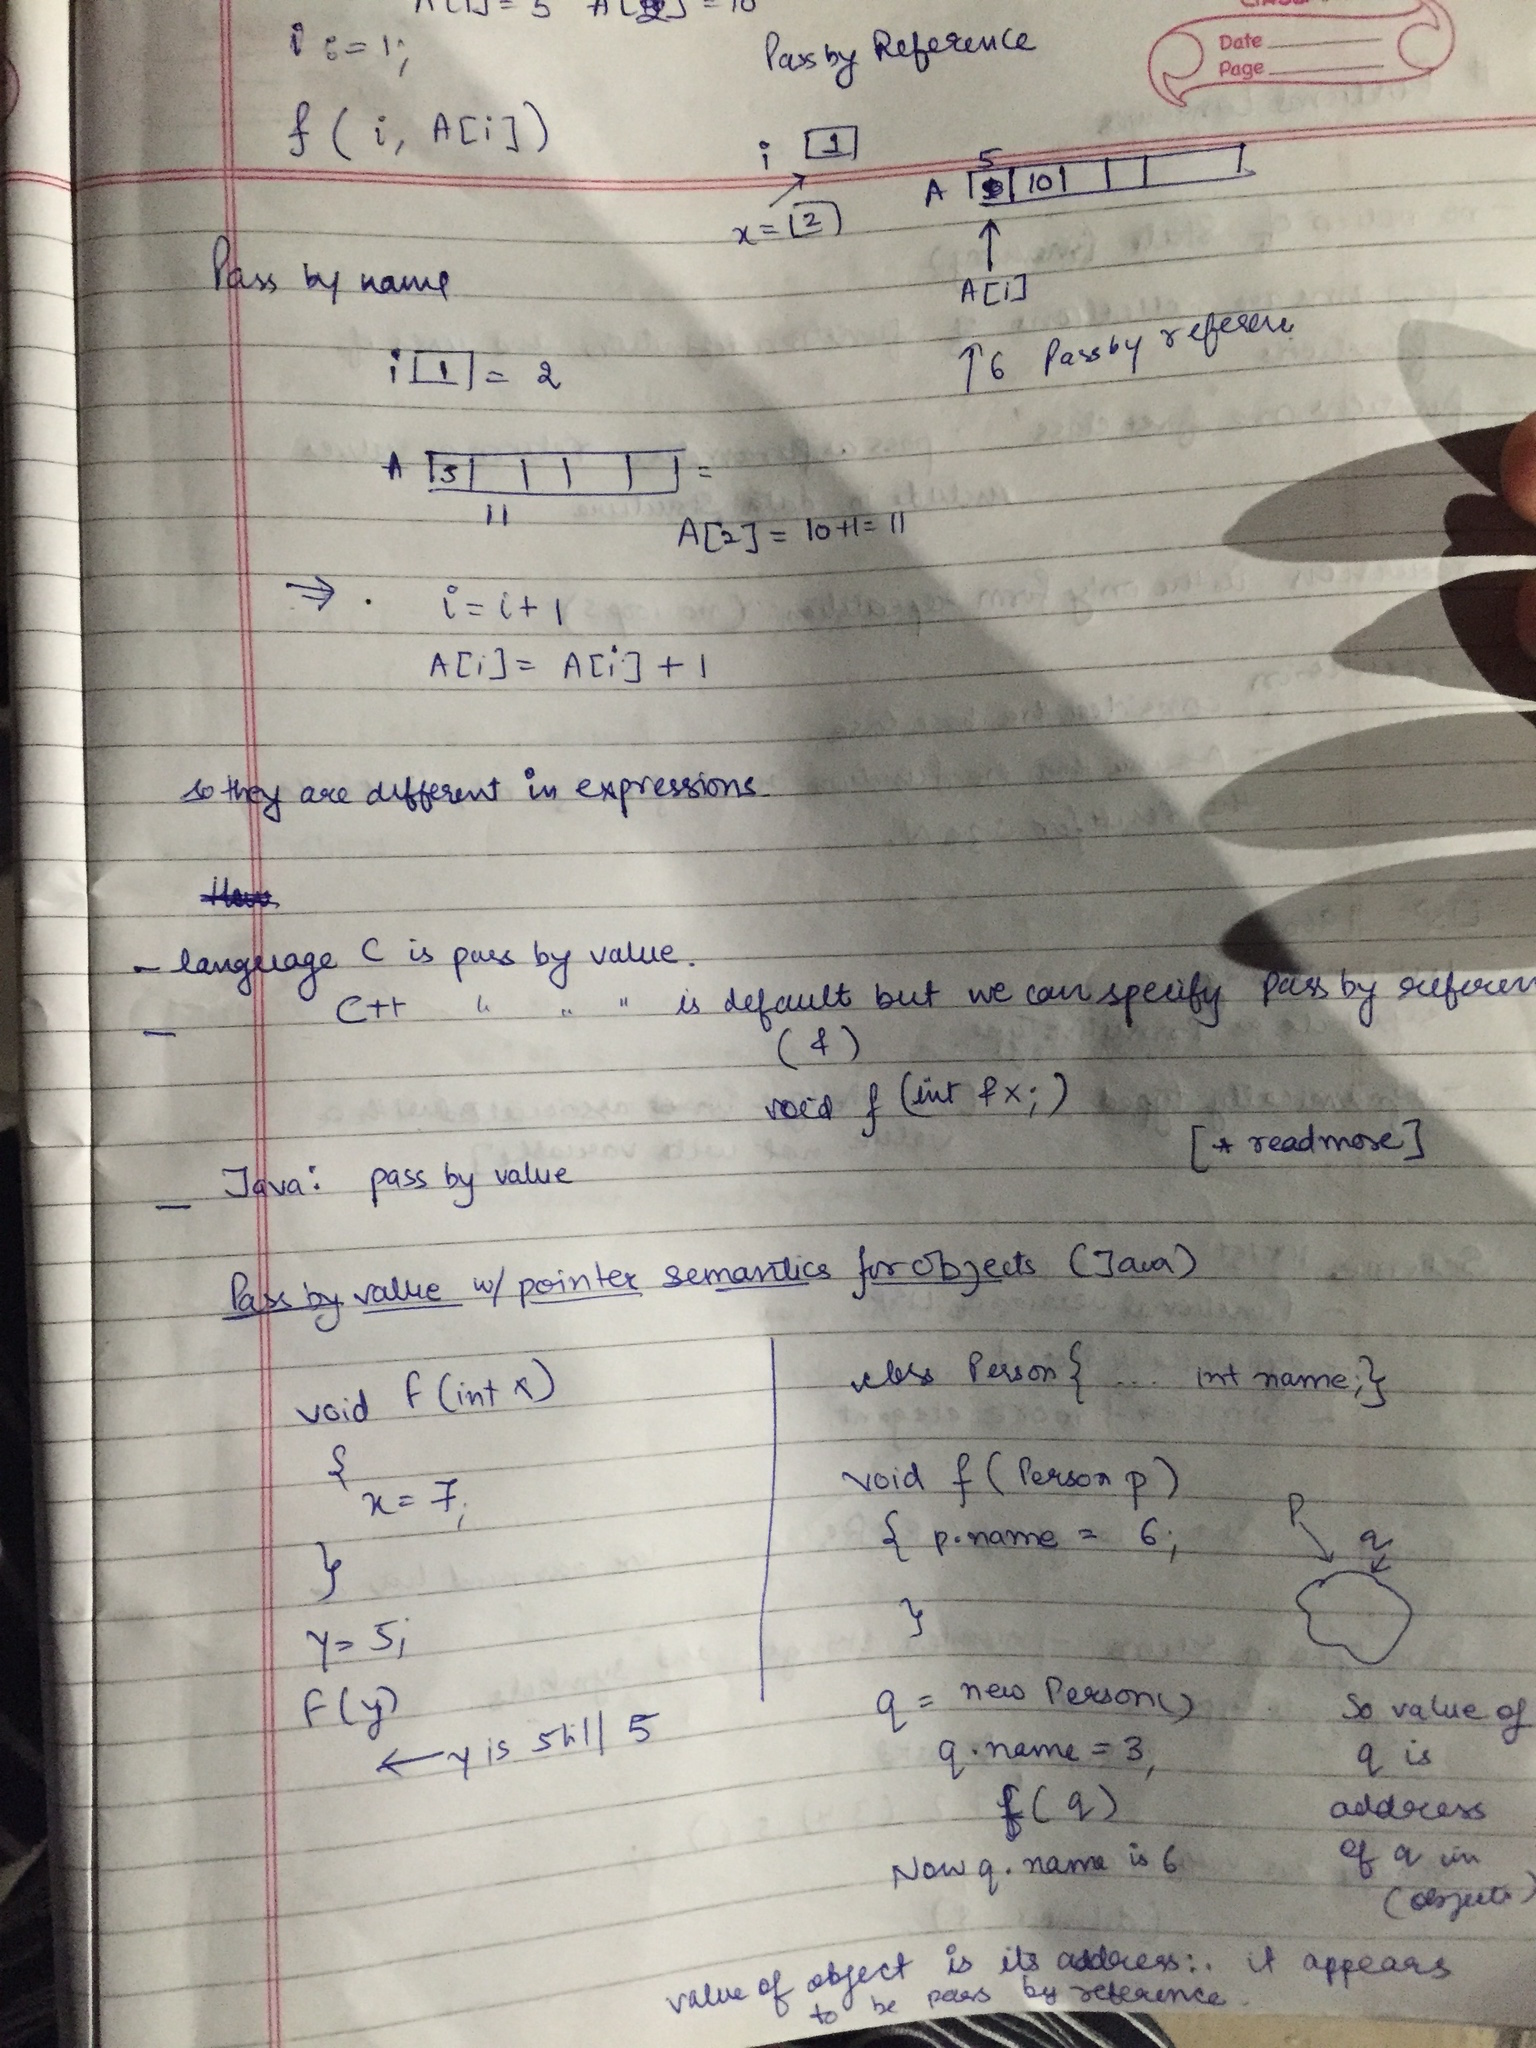 A[1] = 5 A[2] = 10
i := 1;
Pass by Reference
Date
Page
f ( i, A[i])
i 1
x = 2
5
A 10
A[i]
↑6 Pass by referen
Pass by name
i 1 = 2
A 5 =
11
A[2] = 10+1 = 11
⇒ . i = i + 1
A[i] = A[i] + 1
so they are different in expressions
- language C is pass by value.
- C++ " " " is default but we can specify pass by referen
(&)
void f (int &x;)
[* readmore]
- Java: pass by value
Pass by value w/ pointer semantics for objects (Java)
void f (int x)
{
x = 7;
}
y = 5;
f(y)
← y is still 5
class Person { ... int name; }
void f ( Person p )
{ p.name = 6;
}
P
q
q = new Person()
q.name = 3;
f( q )
Now q.name is 6
So value of
q is
address
of q in
(objects)
value of object is its address ∴ it appears
to be pass by reference.